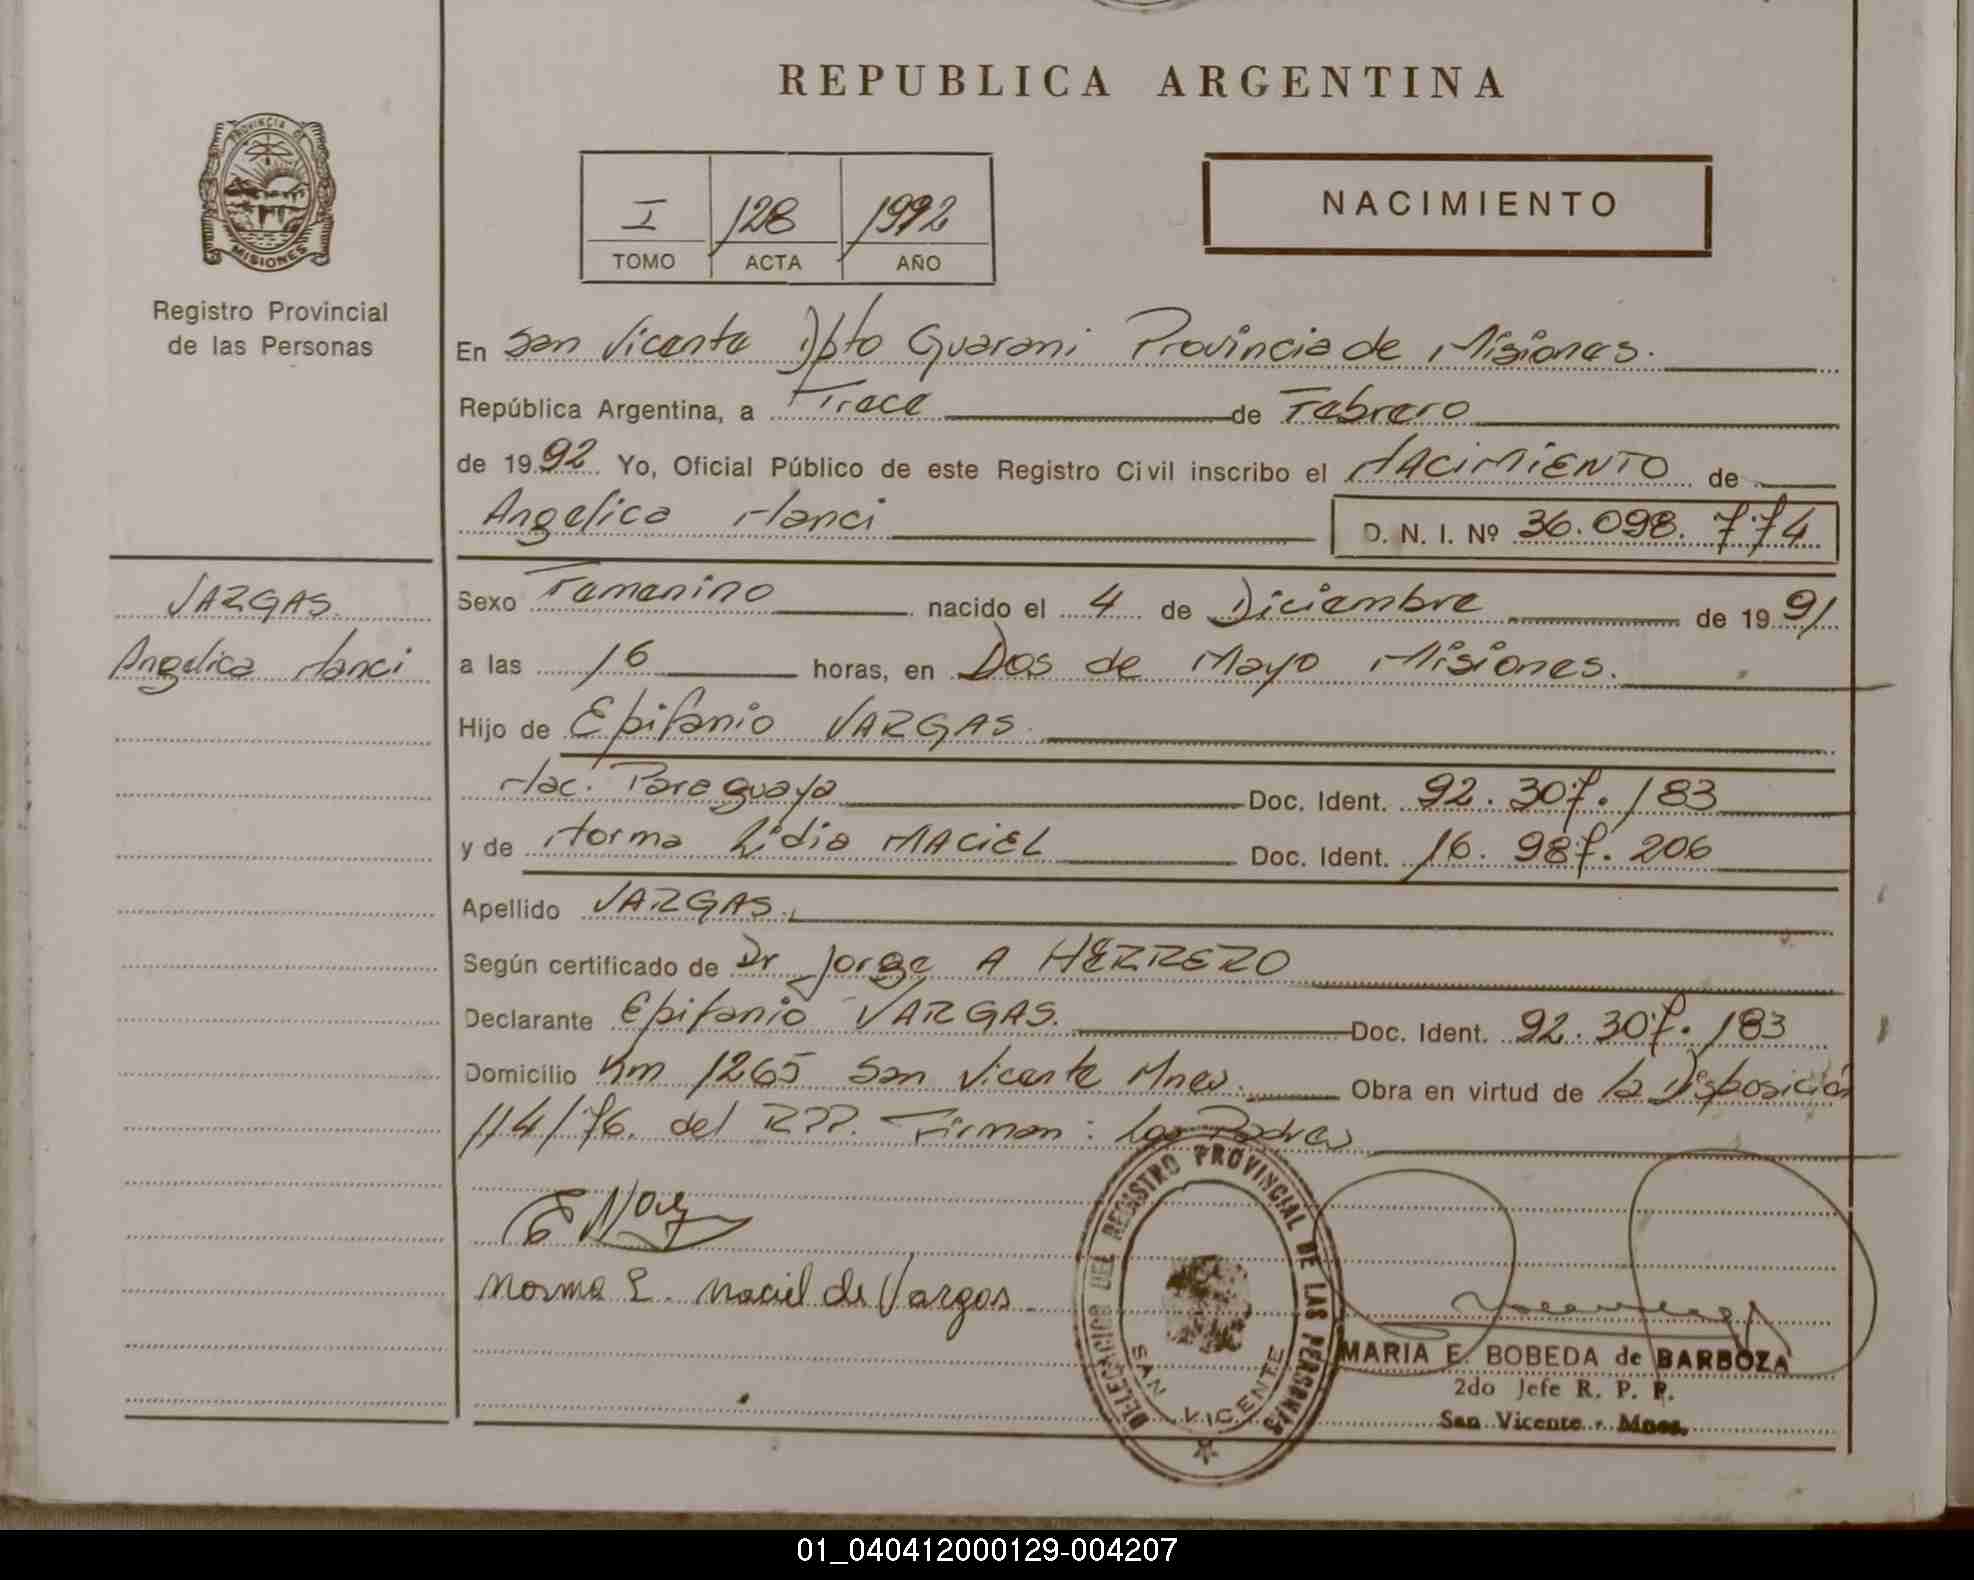 REPUBLICA ARGENTINA
PROVINCIA DE
MISIONES
Registro Provincial
de las Personas
I 128 1992
TOMO ACTA AÑO
NACIMIENTO
En San Vicente Dpto Guarani Provincia de Misiones.
República Argentina, a Trece de Febrero
de 1992 Yo, Oficial Público de este Registro Civil inscribo el NACIMIENTO de
Angelica Nanci D. N. I. Nº 36.098.774
VARGAS
Angelica Nanci
Sexo Femenino nacido el 4 de Diciembre de 1991
a las 16 horas, en Dos de Mayo Misiones.
Hijo de Epifanio VARGAS
Nac. Paraguaya Doc. Ident. 92.307.183
y de Norma Lidia MACIEL Doc. Ident. 16.987.206
Apellido VARGAS.
Según certificado de Dr Jorge A HERRERO
Declarante Epifanio VARGAS. Doc. Ident. 92.307.183
Domicilio Km 1265 San Vicente Mnes. Obra en virtud de la Disposición
114/76. del RPP. Firman: los Padres
Norma L. Maciel de Vargas
DELEGACION DEL REGISTRO PROVINCIAL DE LAS PERSONAS
SAN VICENTE
MARIA E. BOBEDA de BARBOZA
2do Jefe R. P. P.
San Vicente - Mnes.
01_040412000129-004207